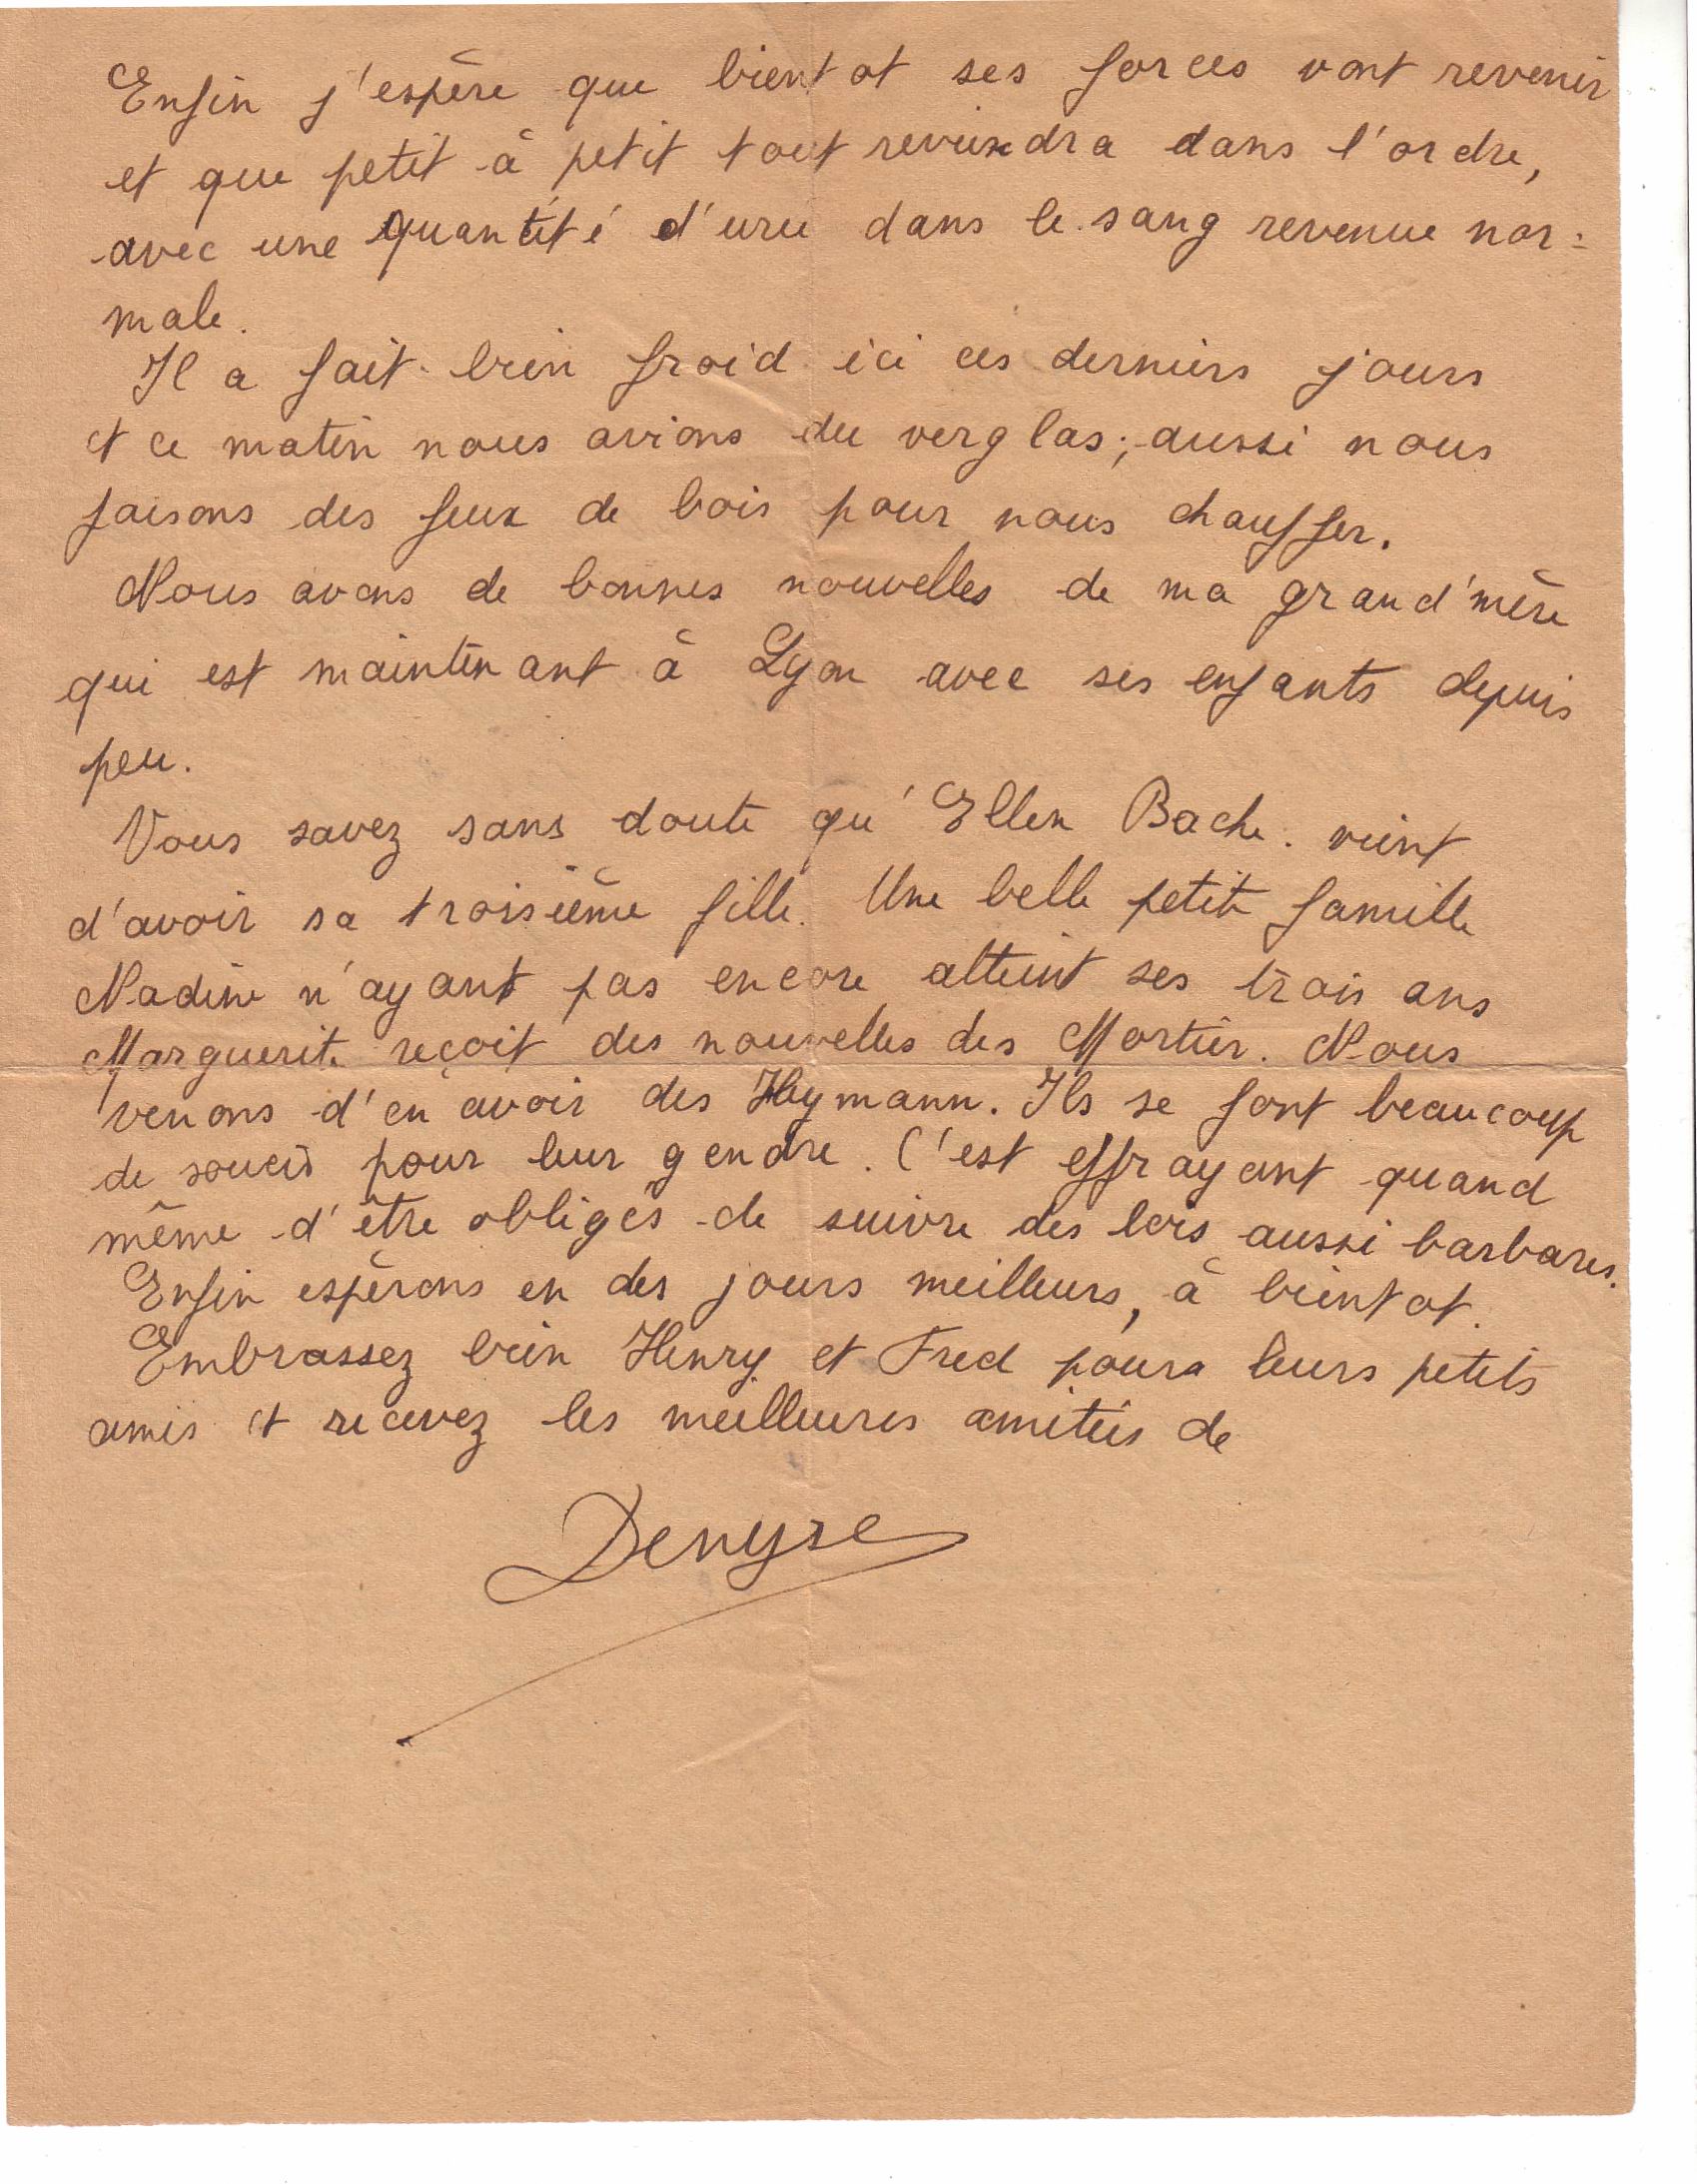 Enfin j'espère que bientot ses forces vont revenir
et que petit à petit tout reviendra dans l'ordre,
avec une quantité d'urée dans le sang revenue nor=
male.
Il a fait bien froid ici ces derniers jours
et ce matin nous avions du verglas; aussi nous
faisons des feux de bois pour nous chauffer.
Nous avons de bonnes nouvelles de ma grand'mère
qui est maintenant à Lyon avec ses enfants depuis
peu.
Vous savez sans doute qu'Ellen Bache. vient
d'avoir sa troisième fille. Une belle petite famille
Nadine n'ayant pas encore atteint ses trois ans
Marguerite reçoit des nouvelles des Mortier. Nous
venons d'en avoir des Heymann. Ils se font beaucoup
de soucis pour leur gendre. C'est effrayant quand
même d'être obligés de suivre des lois aussi barbares.
Enfin espérons en des jours meilleurs, à bientot.
Embrassez bien Henry et Fred pour leurs petits
amis et recevez les meilleures amitiés de
Denyse